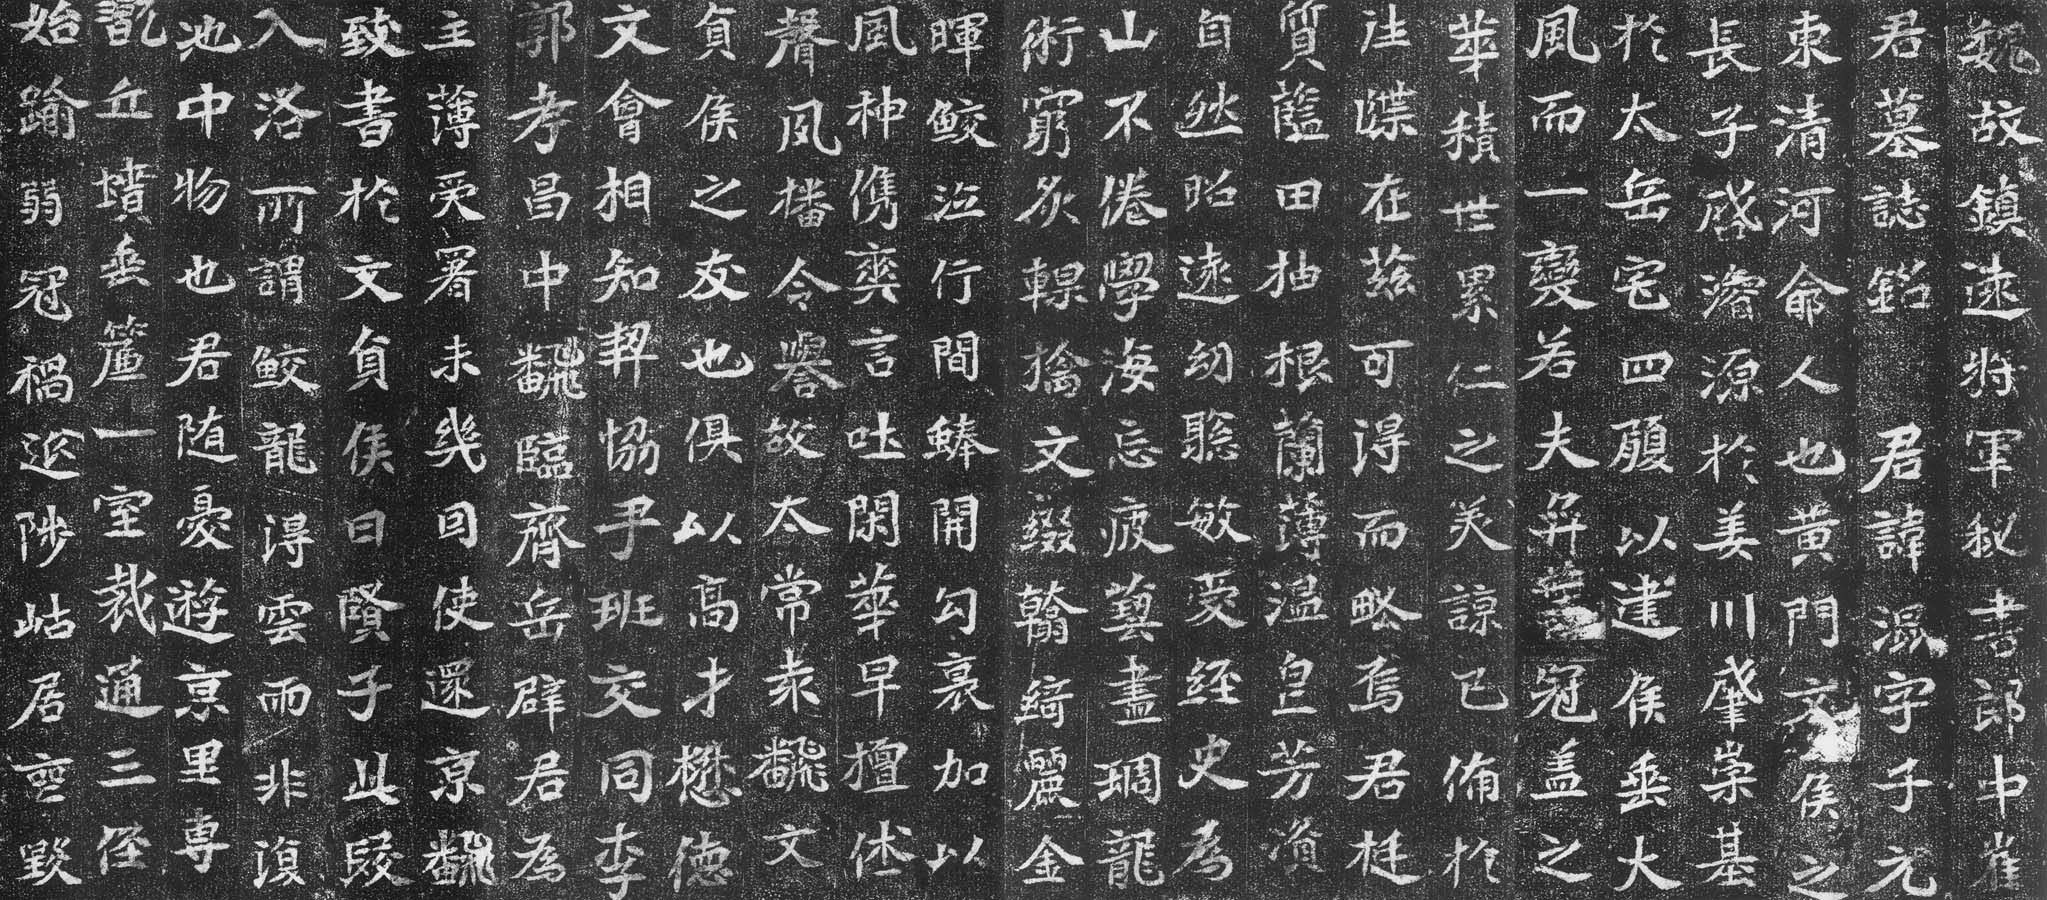 魏故鎮遠將軍秘書郎中崔
君墓誌銘 君諱混字子元
東清河鄃人也黃門文侯之
長子啓濬源於姜川肇崇基
於太岳宅四履以建侯垂大
風而一變若夫弈葉冠蓋之
華積世累仁之美諒已備於
注諜在茲可得而略焉君挺
質藍田抽根蘭薄溫良芳演
自然昭遠幼聰敏愛經史為
山不倦學海忘疲藝盡琱龍
術窮炙輠摛文綴翰綺麗金
暉鮫泣行間蜯開句裏加以
風神儁爽言吐閑華早擅休
聲夙播令譽故太常袁飜文
貞侯之友也俱以高才懋德
文會相知契協尹班交同李
郭孝昌中飜臨齊岳辟君為
主薄受署未幾因使還京飜
致書於文貞侯曰賢子此段
入洛所謂鮫龍得雲雨非復
池中物也君隨憂遊京里專
翫丘墳垂簾一室裁通三徑
始踰弱冠禍延陟岵居喪毀